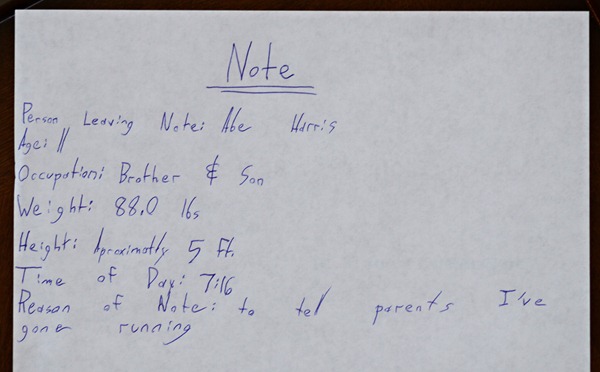 Note
Person Leaving Note: Abe Harris
Age: 11
Occupation: Brother & Son
Weight: 88.0 lbs
Height: Aproximatly 5 Ft.
Time of Day: 7:16
Reason of Note: to tel parents I've
gone running